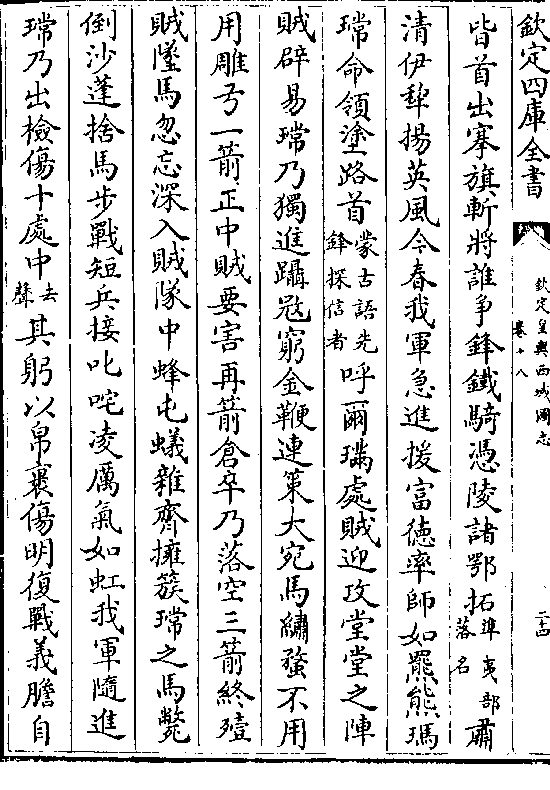 欽定四庫全書
欽定皇輿西域圖志
卷十八
二十四
皆首出搴旗斬將誰爭鋒鐵騎憑陵諸鄂拓準夷部落名肅
清伊犂揚英風今春我軍急進援富德率師如羆熊瑪
瑺命領塗路首蒙古語先鋒探信者呼爾璊處賊迎攻堂堂之陣
賊辟易瑺乃獨進躡寇窮金鞭連策大宛馬繡蝥不用
用雕弓一箭正中賊要害再箭倉卒乃落空三箭終殪
賊墜馬忽忘深入賊隊中蜂屯蟻雜齊擁簇瑺之馬斃
倒沙蓬捨馬步戰短兵接叱咤凌厲氣如虹我軍隨進
瑺乃出檢傷十處中去聲其躬以帛裹傷明復戰義膽自